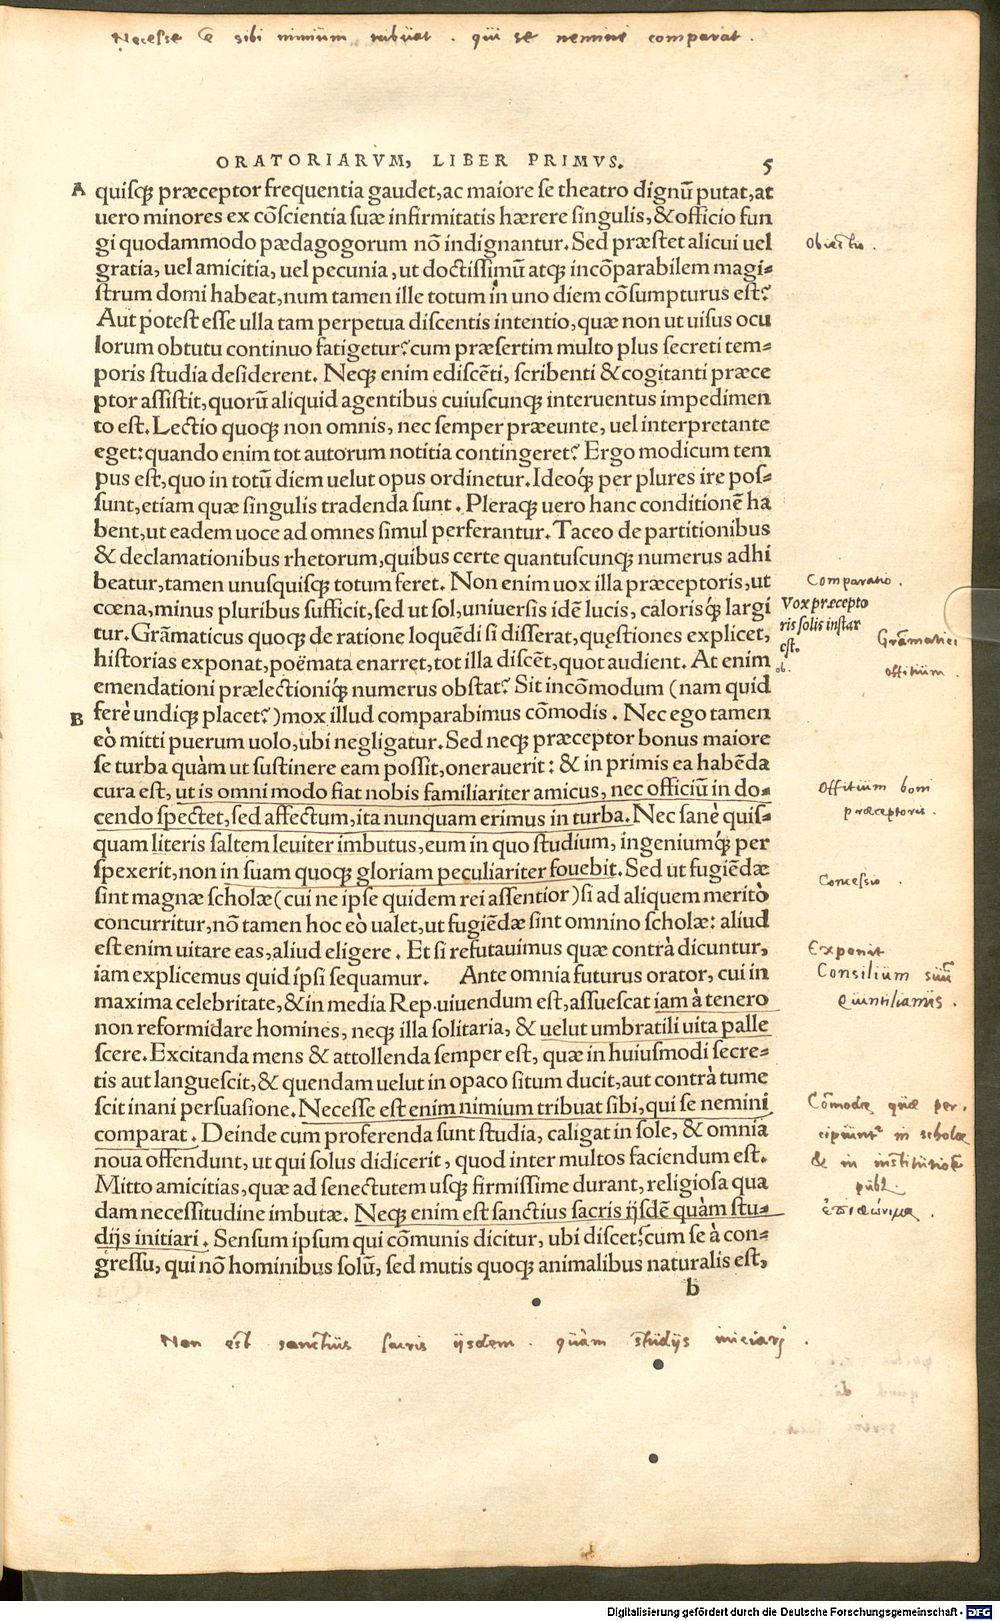 Necesse ẽ sibi nimium tribuat . qui se nemini comparat .
ORATORIARVM, LIBER PRIMVS. 5
A quisqꝫ præceptor frequentia gaudet, ac maiore se theatro dignũ putat, at
uero minores ex cõscientia suæ infirmitatis hærere singulis, & officio fun
gi quodammodo pædagogorum nõ indignantur. Sed præstet alicui uel
Obiectio .
gratia, uel amicitia, uel pecunia, ut doctissimũ atqꝫ incõparabilem magi=
strum domi habeat, num tamen ille totum in uno diem cõsumpturus est?
Aut potest esse ulla tam perpetua discentis intentio, quæ non ut uisus ocu
lorum obtutu continuo fatigetur? cum præsertim multo plus secreti tem=
poris studia desiderent. Neqꝫ enim ediscẽti, scribenti & cogitanti præce
ptor assistit, quorũ aliquid agentibus cuiuscunqꝫ interuentus impedimen
to est. Lectio quoqꝫ non omnis, nec semper præeunte, uel interpretante
eget: quando enim tot autorum notitia contingeret? Ergo modicum tem
pus est, quo in totũ diem uelut opus ordinetur. Ideoq́ꝫ per plures ire pos=
sunt, etiam quæ singulis tradenda sunt. Pleraqꝫ uero hanc conditionẽ ha
bent, ut eadem uoce ad omnes simul perferantur. Taceo de partitionibus
& declamationibus rhetorum, quibus certe quantuscunqꝫ numerus adhi
beatur, tamen unusquisqꝫ totum feret. Non enim uox illa præceptoris, ut
Comparatio .
cœna, minus pluribus sufficit, sed ut sol, uniuersis idẽ lucis, calorisq́ꝫ largi
Vox præcepto
ris solis instar
est.
tur. Grãmaticus quoqꝫ de ratione loquẽdi si disserat, quęstiones explicet,
Grãmatici
offitium .
historias exponat, poëmata enarret, tot illa discẽt, quot audient. At enim
ob.
emendationi prælectioniq́ꝫ numerus obstat? Sit incõmodum (nam quid
B ferè undiqꝫ placet?) mox illud comparabimus cõmodis. Nec ego tamen
eò mitti puerum uolo, ubi negligatur. Sed neqꝫ præceptor bonus maiore
se turba quàm ut sustinere eam possit, onerauerit: & in primis ea habẽda
cura est, ut is omni modo fiat nobis familiariter amicus, nec officiũ in do=
Offitium boni
præceptoris .
cendo spectet, sed affectum, ita nunquam erimus in turba. Nec sanè quis=
quam literis saltem leuiter imbutus, eum in quo studium, ingeniumq́ꝫ per
spexerit, non in suam quoqꝫ gloriam peculiariter fouebit. Sed ut fugiẽdæ
Concessio .
sint magnæ scholæ (cui ne ipse quidem rei assentior) si ad aliquem meritò
concurritur, nõ tamen hoc eò ualet, ut fugiẽdæ sint omnino scholæ: aliud
est enim uitare eas, aliud eligere. Et si refutauimus quæ contrà dicuntur,
Exponit
Consilium suũ
Quintilianus .
iam explicemus quid ipsi sequamur. Ante omnia futurus orator, cui in
maxima celebritate, & in media Rep. uiuendum est, assuescat iam à tenero
non reformidare homines, neqꝫ illa solitaria, & uelut umbratili uita palle
scere. Excitanda mens & attollenda semper est, quæ in huiusmodi secre=
tis aut languescit, & quendam uelut in opaco situm ducit, aut contrà tume
scit inani persuasione. Necesse est enim nimium tribuat sibi, qui se nemini
Cõmodæ quæ per
in scholæ
& in
publ.
comparat. Deinde cum proferenda sunt studia, caligat in sole, & omnia
noua offendunt, ut qui solus didicerit, quod inter multos faciendum est.
Mitto amicitias, quæ ad senectutem usqꝫ firmissime durant, religiosa qua
dam necessitudine imbutæ. Neqꝫ enim est sanctius sacris ijsdẽ quàm stu=
dijs initiari. Sensum ipsum qui cõmunis dicitur, ubi discet? cum se à con=
gressu, qui nõ hominibus solũ, sed mutis quoqꝫ animalibus naturalis est,
b
Non est sanctius sacris ijsdem . quàm studijs iniciarj .
Digitalisierung gefördert durch die Deutsche Forschungsgemeinschaft - DFG